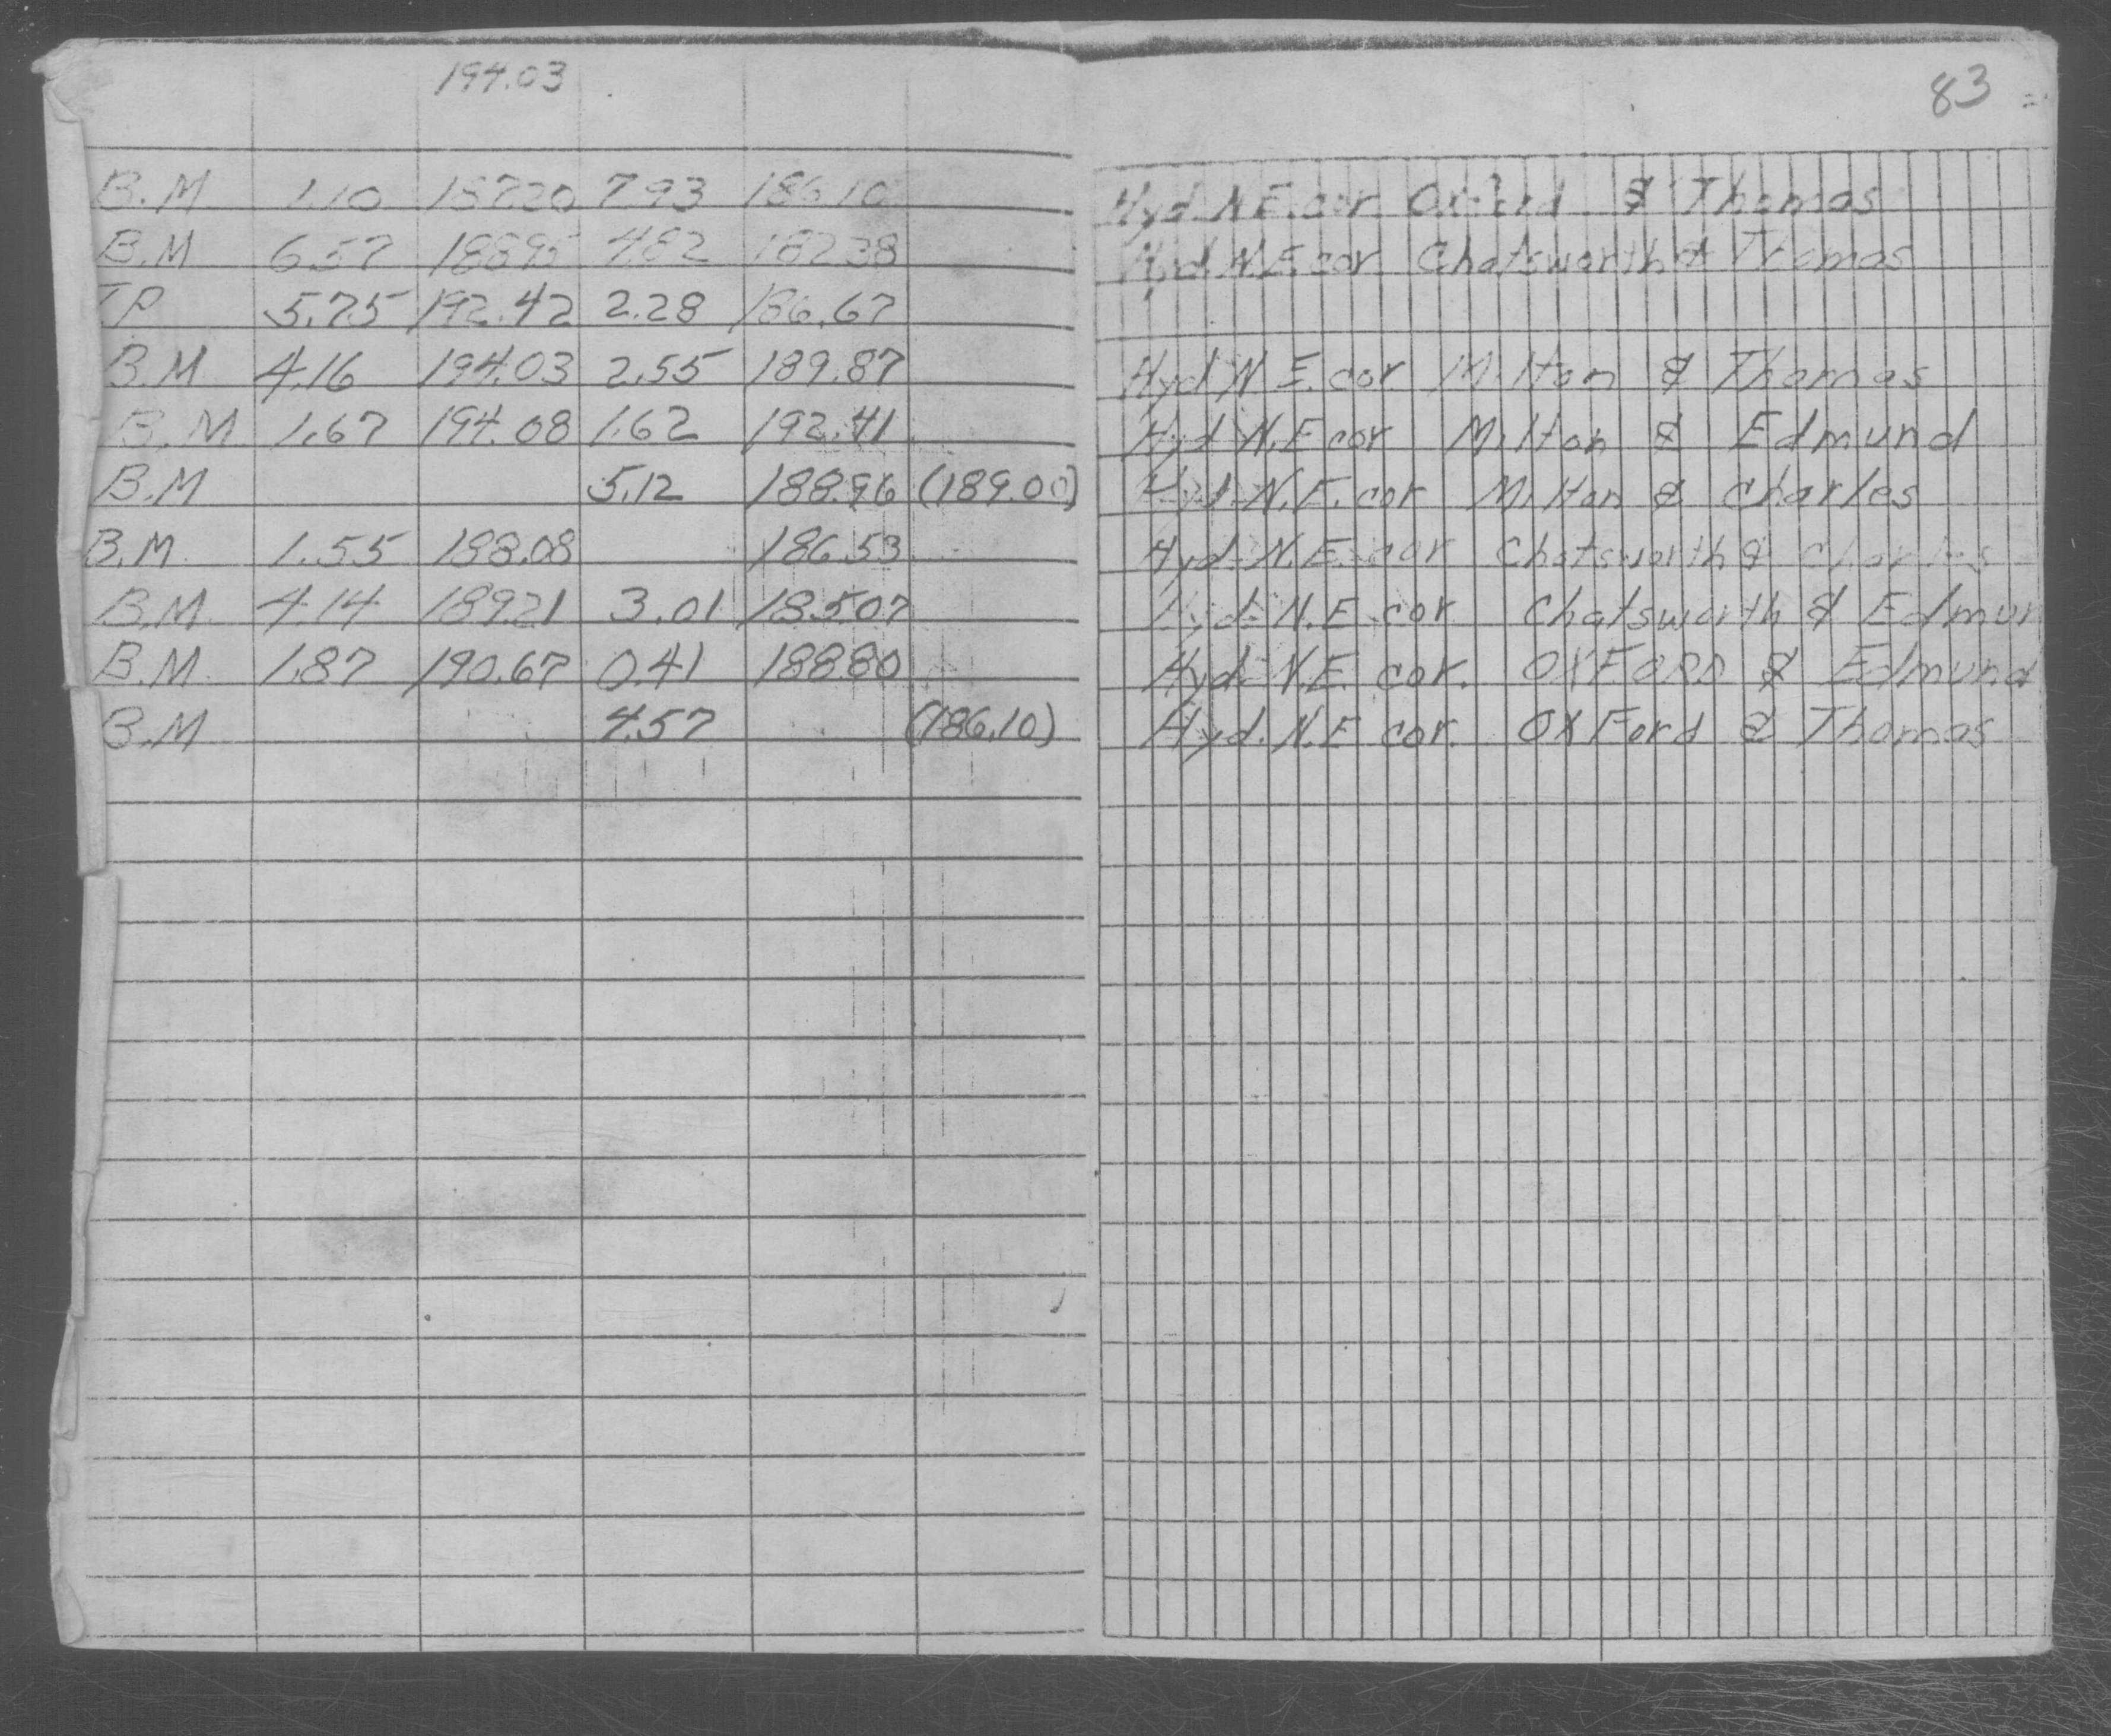 194.03
83
B.M 1.10 187.20 7.93 186.10 Hyd. N.E. cor. Oxford & Thomas
B.M 6.57 188.95 4.82 182.38 Hyd. N.E. cor. Chatsworth & Thomas
T.P. 5.75 192.42 2.28 186.67
B.M. 4.16 194.03 2.55 189.87 Hyd N.E. cor Milton & Thomas
B.M. 1.67 194.08 1.62 192.41 Hyd N.E cor Milton & Edmund
B.M 5.12 188.96 (189.00) Hyd. N.E. cor Milton & Charles
B.M. 1.55 188.08 186.53 Hyd. N.E. cor Chatsworth & Charles
B.M. 4.14 189.21 3.01 185.07 Hyd. N.E cor. Chatsworth & Edmun
B.M. 1.87 190.67 0.41 188.80 Hyd. N.E. cor. OXFORD & Edmund
B.M 4.57 (186.10) Hyd. N.E cor. OXFord & Thomas